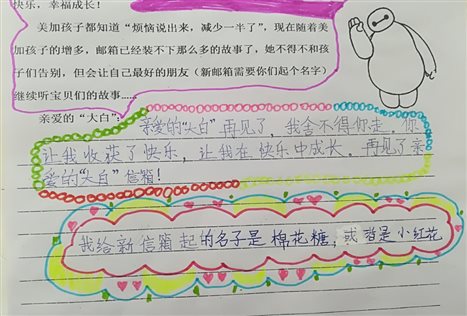 快乐，幸福成长！
美加孩子都知道“烦恼说出来，减少一半了”，现在随着美
加孩子的增多，邮箱已经装不下那么多的故事了，她不得不和孩
子们告别，但会让自己最好的朋友（新邮箱需要你们起个名字）
继续听宝贝们的故事……
亲爱的“大白”：
亲爱的“大白”再见了，我舍不得你走，你
让我收获了快乐，让我在快乐中成长，再见了亲
爱的“大白”信箱！
我给新信箱起的名子是棉花糖，或者是小红花